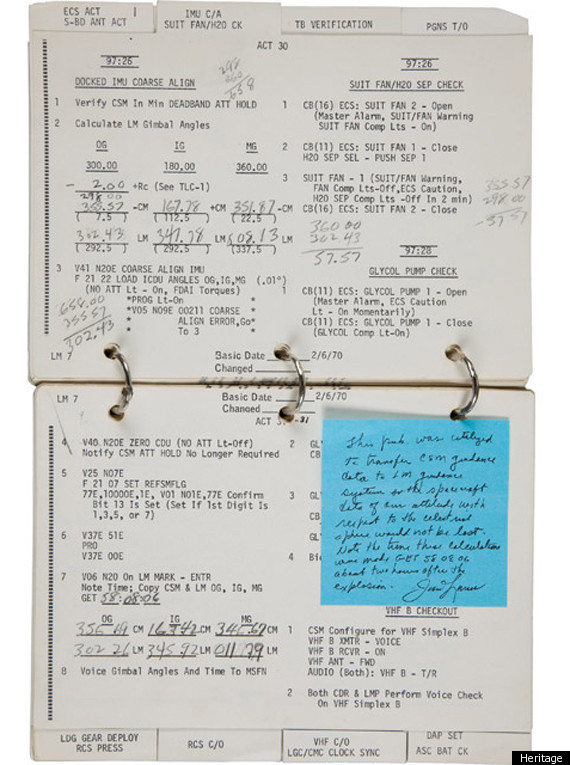 ECS ACT
S-BD ANT ACT
IMU C/A
SUIT FAN/H2O CK
TB VERIFICATION
PGNS T/O
ACT 30
97:26
DOCKED IMU COARSE ALIGN
298
360
658
1 Verify CSM In Min DEADBAND ATT HOLD
2 Calculate LM Gimbal Angles
OG IG MG
300.00 180.00 360.00
- 2.00 +Rc (See TLC-1)
298.00
355.57 -CM 167.78 +CM 351.87 -CM
(7.5) (112.5) (22.5)
302.43 LM 347.78 LM 608.13 LM
(292.5) (292.5) (337.5)
3 V41 N20E COARSE ALIGN IMU
F 21 22 LOAD ICDU ANGLES OG,IG,MG (.01°)
(NO ATT Lt - On, FDAI Torques)
*PROG Lt-On *
*V05 N09E 00211 COARSE *
* ALIGN ERROR,Go*
* To 3 *
658.00
355.57
302.43
97:26
SUIT FAN/H2O SEP CHECK
1 CB(16) ECS: SUIT FAN 2 - Open
(Master Alarm, SUIT/FAN Warning
SUIT FAN Comp Lts - On)
2 CB(11) ECS: SUIT FAN 1 - Close
H2O SEP SEL - PUSH SEP 1
3 SUIT FAN - 1 (SUIT/FAN Warning,
FAN Comp Lts-Off,ECS Caution,
H2O SEP Comp Lts -Off In 2 min)
CB(16) ECS: SUIT FAN 2 - Close
355.57
298.00
-57.57
360.00
302.43
57.57
97:28
GLYCOL PUMP CHECK
1 CB(11) ECS: GLYCOL PUMP 1 - Open
(Master Alarm, ECS Caution
Lt - On Momentarily)
CB(11) ECS: GLYCOL PUMP 1 - Close
(GLYCOL Comp Lt-On)
LM 7
Basic Date 2/6/70
Changed
LM 7
Basic Date 2/6/70
Changed
ACT 31
4 V40 N20E ZERO CDU (NO ATT Lt-Off)
Notify CSM ATT HOLD No Longer Required
5 V25 N07E
F 21 07 SET REFSMFLG
77E,10000E,1E, V01 N01E,77E Confirm
Bit 13 Is Set (Set If 1st Digit Is
1,3,5, or 7)
6 V37E 51E
PRO
V37E 00E
7 V06 N20 On LM MARK - ENTR
Note Time; Copy CSM & LM OG, IG, MG
GET 58:08:06
OG IG MG
CM CM CM
302 26 LM 345 92 LM 011 79 LM
8 Voice Gimbal Angles And Time To MSFN
2 GL
CB
3 GL
GL
4
This page was utilized
to transfer CSM guidance
data to LM guidance
system so the spacecraft
data of our attitude with
respect to the celestial
sphere would not be lost.
Note the time these calculations
was made GET 58 08 06
about two hours after the
explosion.
VHF B CHECKOUT
1 CSM Configure for VHF Simplex B
VHF B XMTR - VOICE
VHF B RCVR - ON
VHF ANT - FWD
AUDIO (Both): VHF B - T/R
2 Both CDR & LMP Perform Voice Check
On VHF Simplex B
LDG GEAR DEPLOY
RCS PRESS
RCS C/O
VHF C/O
LGC/CMC CLOCK SYNC
DAP SET
ASC BAT CK
Heritage